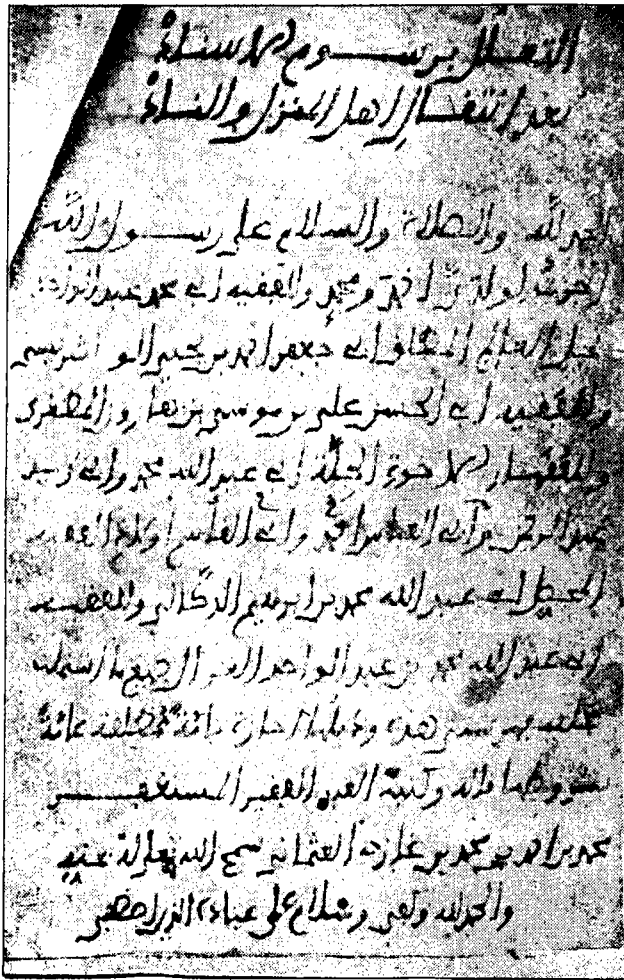 التعلل برسوم الاسناد
بعد انتقال اهل المنزل والناد
الحمد لله والصلاة والسلام على رسول الله
أجزت لولدي أحمد ومحمد والفقيه أبي محمد عبد
نجل العالم أبي جعفر احمد بن يحيى الونشريسي
والفقيه أبي الحسن علي بن موسى بن هارون المطغري
والفقهاء الاخوة الجلة أبي عبد الله محمد وأبي زيد
عبد الرحمن وأبي العباس احمد وأبي القاسم أولاد الفقيه
أبي عبد الله محمد بن ابراهيم الدكالي والفقيه
أبي عبد الله محمد بن عبد الواحد جميع ما اشتملت
عليه فهرستي هذه اجازة تامة مطلقة عامة
بشروطها وكتبه العبد الفقير المستغفر
محمد بن احمد بن محمد بن غازي العثماني سمح الله تعالى له بمنه
والحمد لله وكفى وسلام على عباده الذين اصطفى